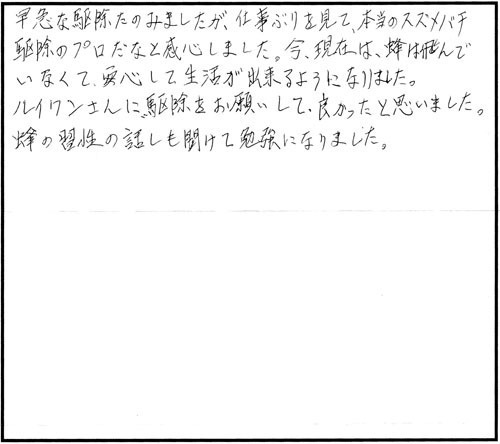 早急な駆除たのみましたが、仕事ぶりを見て、本当のスズメバチ
駆除のプロだなと感心しました。今、現在は、蜂は飛んで
いなくて、安心して生活が出来るようになりました。
ルイワンさんに駆除をお願いして、良かったと思いました。
蜂の習性の話しも聞けて勉強になりました。